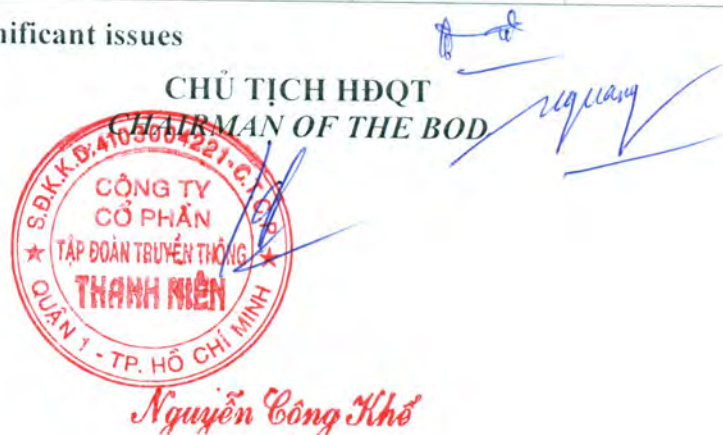 nificant issues
CHỦ TỊCH HĐQT
CHAIRMAN OF THE BOD
S.Đ.K.K.D:4103004221-C.T.C.P
CÔNG TY
CỔ PHẦN
TẬP ĐOÀN TRUYỀN THÔNG
THANH NIÊN
QUẬN 1 - TP. HỒ CHÍ MINH
Nguyễn Công Khế